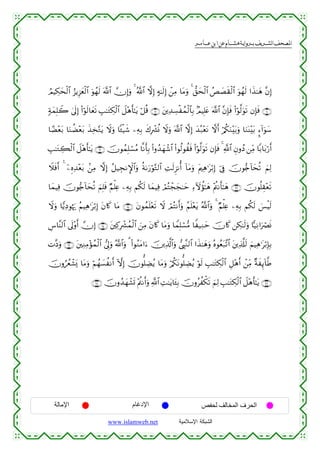 المصحف الشريف برواية هشام عن ابن عامر
إِنَّ هَٰذَا لَهُوَ ٱلْقَصَصُ ٱلْحَقُّ ۚ وَمَا مِنْ إِلَٰهٍ إِلَّا ٱللَّهُ ۚ وَإِنَّ ٱللَّهَ لَهُوَ ٱلْعَزِيزُ ٱلْحَكِيمُ
فَإِن تَوَلَّوْا۟ فَإِنَّ ٱللَّهَ عَلِيمٌۢ بِٱلْمُفْسِدِينَ قُلْ يَٰٓأَهْلَ ٱلْكِتَٰبِ تَعَالَوْا۟ إِلَىٰ كَلِمَةٍ
سَوَآءٍۭ بَيْنَنَا وَبَيْنَكُمْ أَلَّا نَعْبُدَ إِلَّا ٱللَّهَ وَلَا نُشْرِكَ بِهِۦ شَيْـًٔا وَلَا يَتَّخِذَ بَعْضُنَا بَعْضًا
أَرْبَابًا مِّن دُونِ ٱللَّهِ ۚ فَإِن تَوَلَّوْا۟ فَقُولُوا۟ ٱشْهَدُوا۟ بِأَنَّا مُسْلِمُونَ يَٰٓأَهْلَ ٱلْكِتَٰبِ
لِمَ تُحَآجُّونَ فِىٓ إِبْرَٰهِيمَ وَمَآ أُنزِلَتِ ٱلتَّوْرَىٰةُ وَٱلْإِنجِيلُ إِلَّا مِنۢ بَعْدِهِۦٓ ۚ أَفَلَا
تَعْقِلُونَ هَٰٓأَنتُمْ هَٰٓؤُلَآءِ حَٰجَجْتُمْ فِيمَا لَكُم بِهِۦ عِلْمٌ فَلِمَ تُحَآجُّونَ فِيمَا
لَيْسَ لَكُم بِهِۦ عِلْمٌ ۚ وَٱللَّهُ يَعْلَمُ وَأَنتُمْ لَا تَعْلَمُونَ مَا كَانَ إِبْرَٰهِيمُ يَهُودِيًّا وَلَا
نَصْرَانِيًّا وَلَٰكِن كَانَ حَنِيفًا مُّسْلِمًا وَمَا كَانَ مِنَ ٱلْمُشْرِكِينَ إِنَّ أَوْلَى ٱلنَّاسِ
بِإِبْرَٰهِيمَ لَلَّذِينَ ٱتَّبَعُوهُ وَهَٰذَا ٱلنَّبِىُّ وَٱلَّذِينَ ءَامَنُوا۟ ۗ وَٱللَّهُ وَلِىُّ ٱلْمُؤْمِنِينَ وَدَّت
طَّآئِفَةٌ مِّنْ أَهْلِ ٱلْكِتَٰبِ لَوْ يُضِلُّونَكُمْ وَمَا يُضِلُّونَ إِلَّآ أَنفُسَهُمْ وَمَا يَشْعُرُونَ
يَٰٓأَهْلَ ٱلْكِتَٰبِ لِمَ تَكْفُرُونَ بِـَٔايَٰتِ ٱللَّهِ وَأَنتُمْ تَشْهَدُونَ
الحرف المخالف لحفص الإدغام الإمالة
الشبكة الإسلامية www.islamweb.net